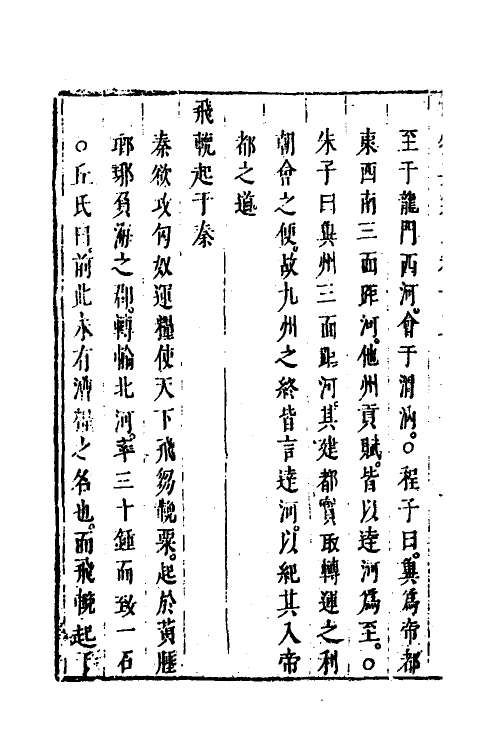 至于龍門西河。會于渭汭。○程子曰。冀爲帝都
東西南三面距河。他州貢賦。皆以達河爲至。○
朱子曰冀州三面距河。其建都實取轉運之利
朝會之便。故九州之終皆言達河。以紀其入帝
都之道。
飛輓起于秦
秦欲攻匈奴運糧使天下飛芻輓粟。起於黃腄
琅琊負海之郡。轉輸北河。率三十鍾而致一石
○丘氏曰。前此未有漕糧之名也。而飛輓起于